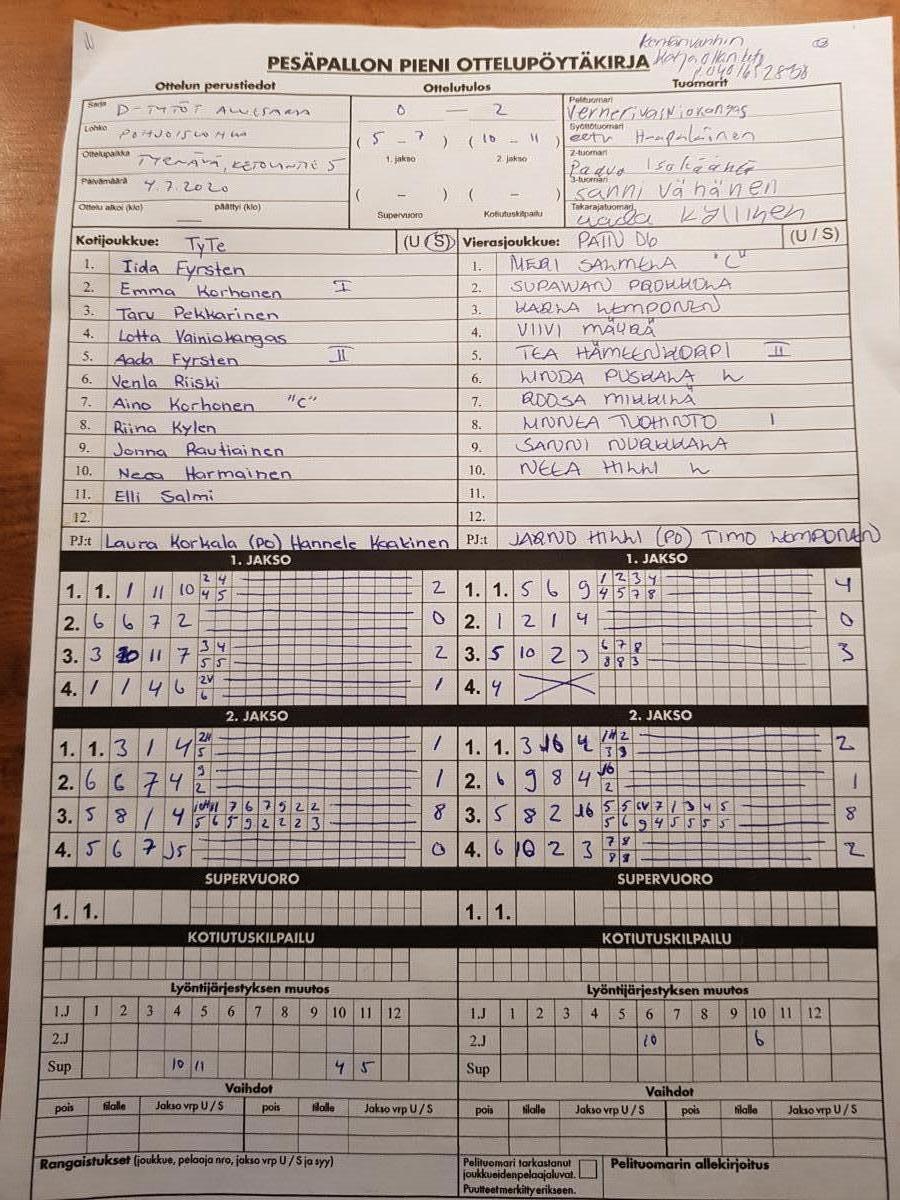 Kentänvanhin
PESÄPALLON PIENI OTTELUPÖYTÄKIRJA
Ottelun perustiedot Ottelutulos Tuomarit
Sarja D-TYTÖT ALUESARJA 0 — 2 Pelituomari Verneri Vainiokangas
Lohko POHJOISLOHKO ( 5 - 7 ) ( 10 - 11 ) Syöttötuomari eetu Haapalainen
Ottelupaikka TYRNÄVÄ, KETOLANTIE 5 1. jakso 2. jakso 2-tuomari Paavo
Päivämäärä 4.7.2020 ( - ) ( - ) 3-tuomari sanni vähänen
Ottelu alkoi (klo) päättyi (klo) Supervuoro Kotiutuskilpailu Takarajatuomari Kyllinen
Kotijoukkue: TyTe (U / S) Vierasjoukkue: PATTU D6 (U / S)
1. Iida Fyrsten 1. MERI SALMELA "C"
2. Emma Korhonen I 2. SUPAWAN PROKKOLA
3. Taru Pekkarinen 3. KARLA KEMPONEN
4. Lotta Vainiokangas 4. VIIVI MÄYRÄ
5. Aada Fyrsten II 5. TEA HÄMEENKORPI II
6. Venla Riiski 6. LINDA PUSKALA L
7. Aino Korhonen "C" 7. ROOSA MIKKILÄ
8. Riina Kylen 8. LINNEA TUOHINTO I
9. Jonna Rautiainen 9. SANNI NURKKALA
10. Neea Harmainen 10. NEEA HIHLI L
11. Elli Salmi 11.
12. 12.
PJ:t Laura Korkala (PO) Hannele Kaakinen PJ:t JARNO HIHLI (PO) TIMO KEMPONEN
1. JAKSO 1. JAKSO
1. 1. 1 11 10 2 4 4 5 2 1. 1. 5 6 9 1 2 3 4 4 5 7 8 4
2. 6 6 7 2 0 2. 1 2 1 4 0
3. 3 11 7 3 4 5 5 2 3. 5 10 2 3 6 7 8 8 8 3 3
4. 1 1 4 6 2V 6 1 4. 4
2. JAKSO 2. JAKSO
1. 1. 3 1 4 2H 5 1 1. 1. 3 16 4 1H 2 3 3 2
2. 6 6 7 4 9 2 1 2. 6 9 8 4 16 2 1
3. 5 8 1 4 10H 11 7 6 7 9 2 2 5 6 5 9 2 2 2 3 8 3. 5 8 2 16 5 5 6V 7 1 3 4 5 5 6 9 4 5 5 5 5 8
4. 5 6 7 J5 0 4. 6 10 2 3 7 8 8 8 2
SUPERVUORO SUPERVUORO
1. 1. 1. 1.
KOTIUTUSKILPAILU KOTIUTUSKILPAILU
Lyöntijärjestyksen muutos Lyöntijärjestyksen muutos
1.J 1 2 3 4 5 6 7 8 9 10 11 12 1.J 1 2 3 4 5 6 7 8 9 10 11 12
2.J 2.J 10 6
Sup 10 11 4 5 Sup
Vaihdot Vaihdot
pois tilalle Jakso vrp U / S pois tilalle Jakso vrp U / S pois tilalle Jakso vrp U / S pois tilalle Jakso vrp U / S
Rangaistukset (joukkue, pelaaja nro, jakso vrp U / S ja syy) Pelituomari tarkastanut Pelituomarin allekirjoitus
joukkueiden pelaajaluvat.
Puutteet merkitty erikseen.